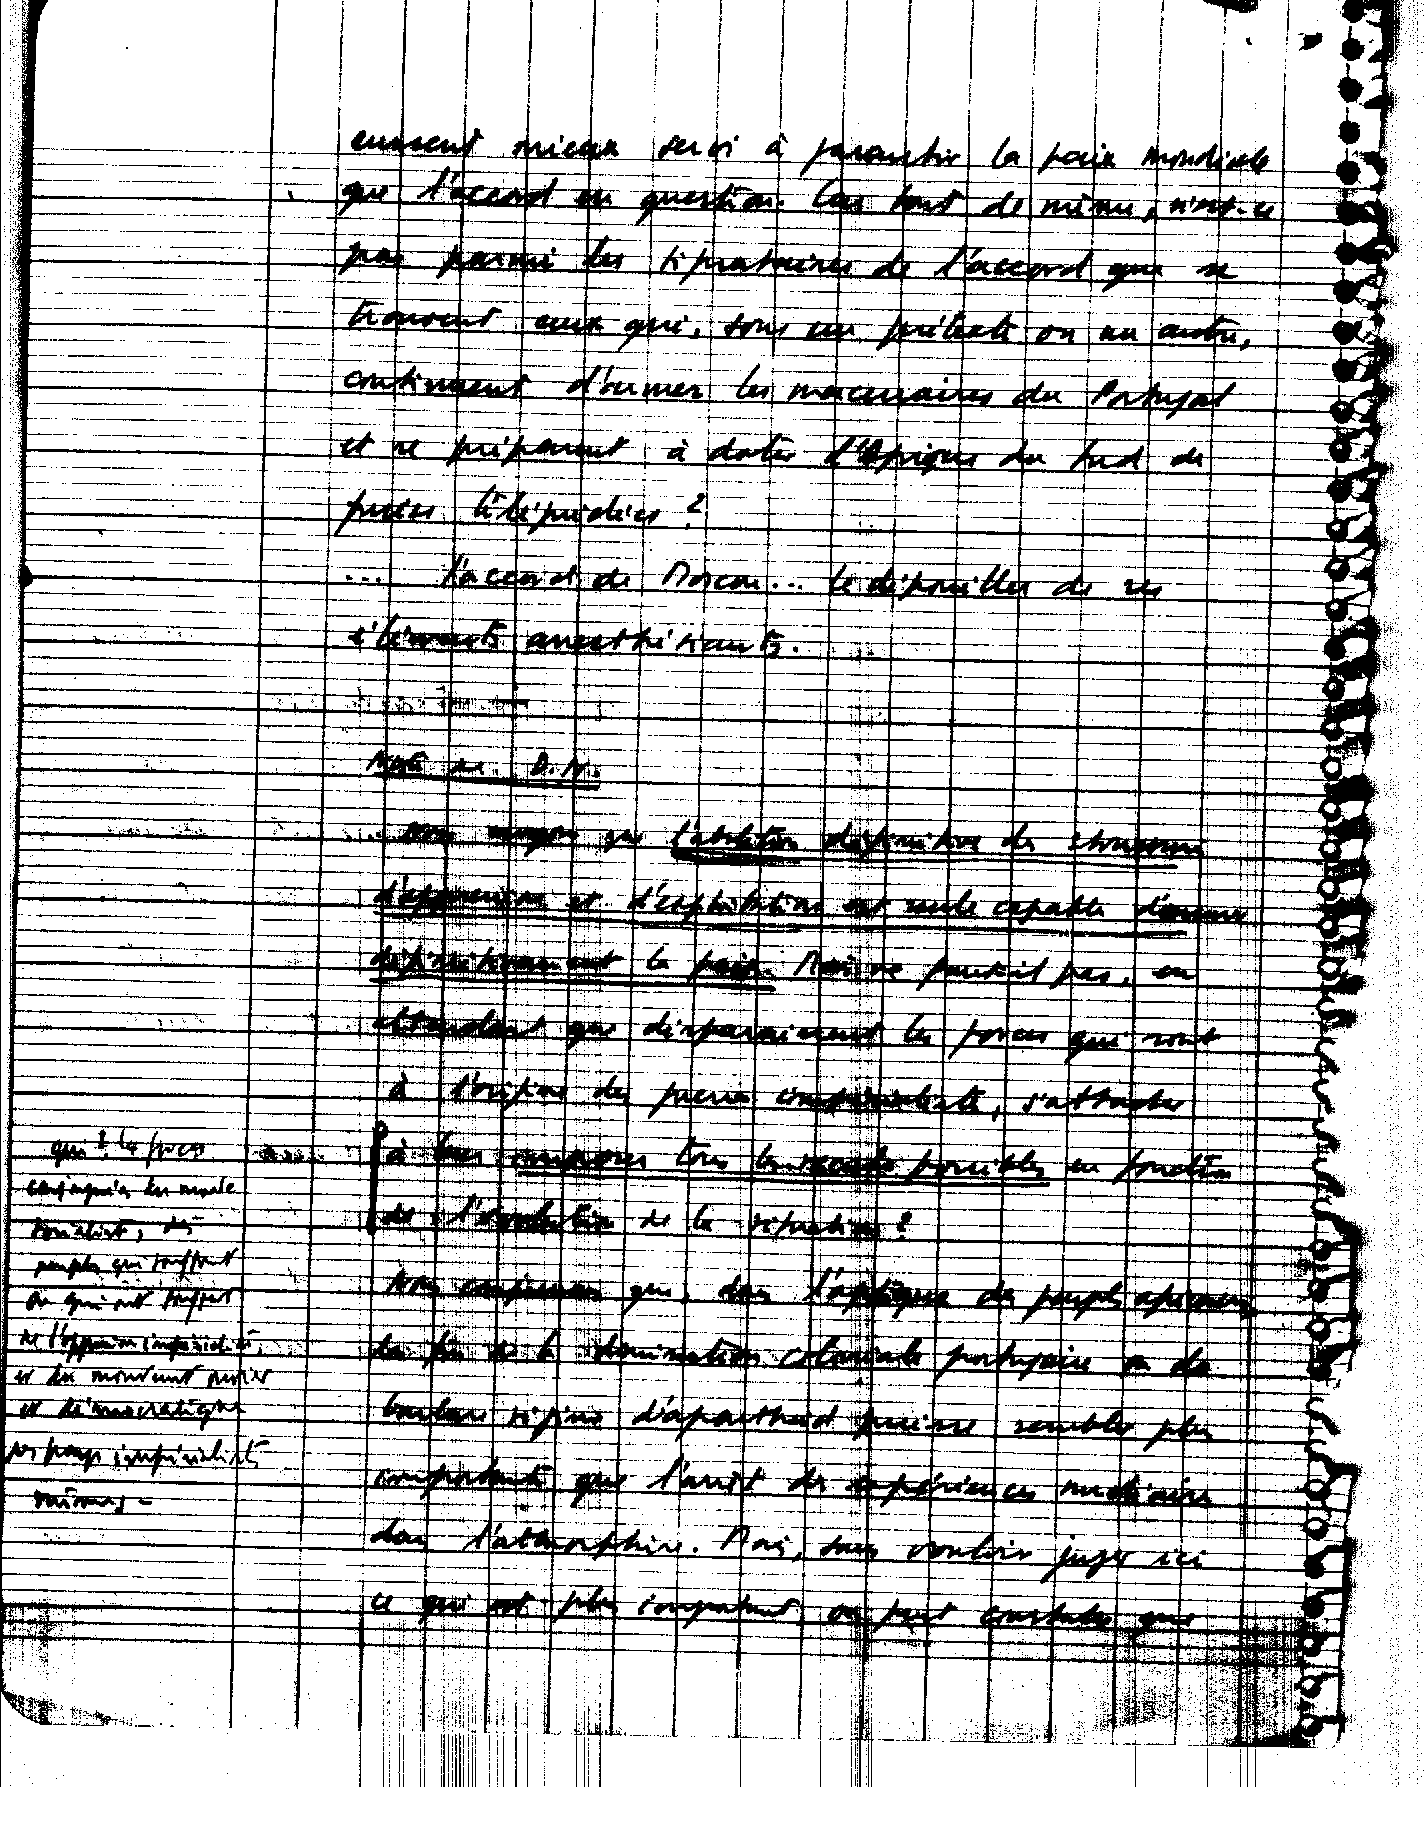 eussent mieux servi à garantir la paix mondiale
que l'accord en question. Car tout de même, n'est-ce
pas parmi les signataires de l'accord que se
trouvent ceux qui, sous un prétexte ou un autre,
continuent d'armer les mercenaires du Portugal
et se préparent à doter l'Afrique du Sud de
fusées téléguidées ?
... l'accord de Moscou... le dépouiller de ses
éléments anesthésiants.
Note se. D.N.
que l'abolition définitive des structures
d'oppression et d'exploitation est seule capable d'assurer
définitivement la paix. Mais ne faudrait pas, en
attendant que disparaissent les forces qui sont
à l'origine des guerres impérialistes, s'attacher
à leur imposer tous les reculs possibles en fonction
de l'évolution de la situation ?
Nous comprenons que, dans l'optique des peuples africains,
la fin de la domination coloniale portugaise ou du
barbare régime d'apartheid puisse sembler plus
importante que l'arrêt des expériences nucléaires
dans l'atmosphère. Mais, sans vouloir juger ici
ce qui est plus important, on peut constater que
qui ? les forces
conjuguées du monde
socialiste, des
peuples qui souffrent
ou qui ont souffert
de l'oppression impérialiste,
et du mouvement ouvrier
et démocratique
des pays impérialistes
mêmes.